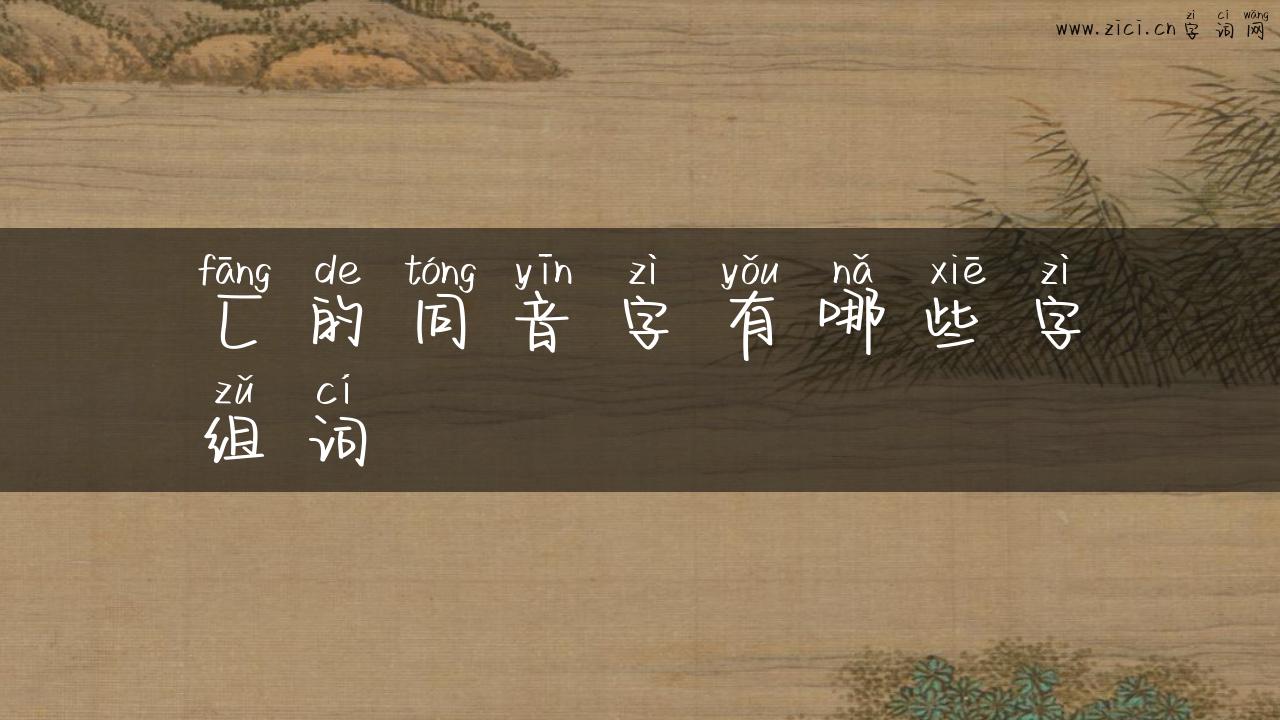 zì cí wǎng
www.zici.cn 字词网
fāng de tóng yīn zì yǒu nǎ xiē zì
匚的同音字有哪些字
zǔ cí
组词